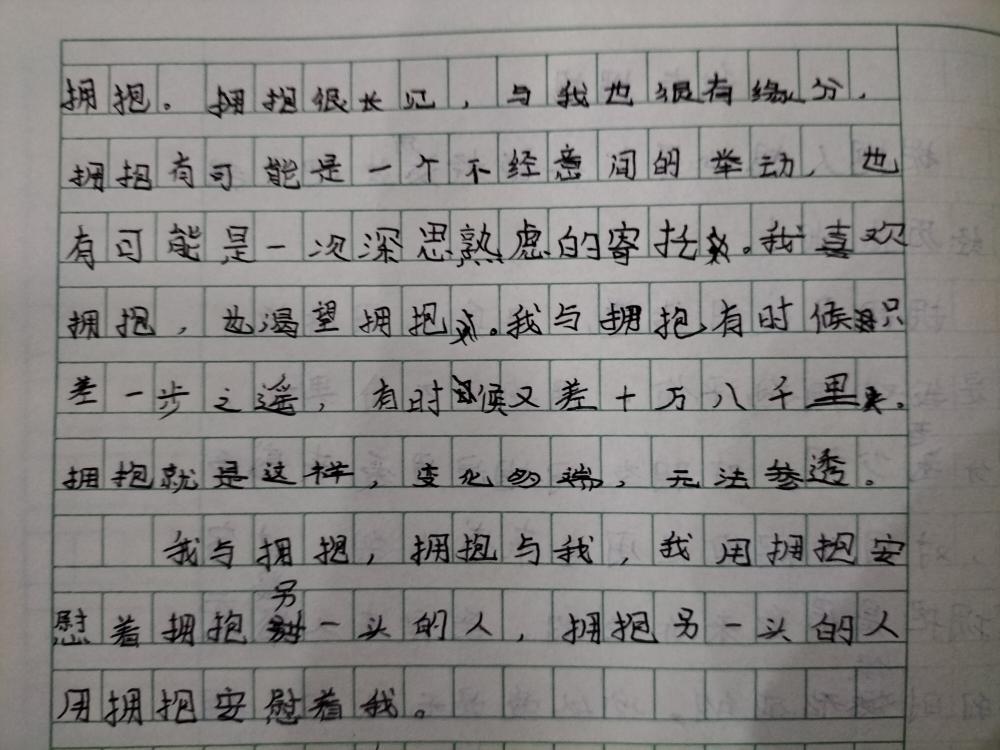 拥抱。拥抱很长记，与我也很有缘分，
拥抱有可能是一个不经意间的举动，也
有可能是一次深思熟虑的寄托。我喜欢
拥抱，也渴望拥抱。我与拥抱有时候只
差一步之遥，有时候又差十万八千里。
拥抱就是这样，变化多端，无法参透。
我与拥抱，拥抱与我，我用拥抱安
慰着拥抱另一头的人，拥抱另一头的人
用拥抱安慰着我。